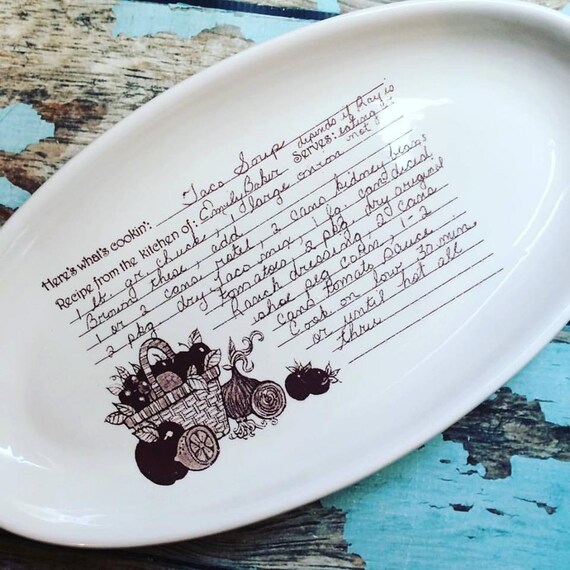 Here's what's cookin': Taco Soup
Recipe from the kitchen of: Emily Baker Serves: depends if Ray is eating or not
1 lb. gr. chuck, 1 large onion
Brown these, add
1 or 2 cans rotel, 2 cans kidney beans
2 pkg dry taco mix, 1 lg. can diced
tomatoes, 2 pkg. dry original
Ranch dressing, 2 cans
shoe peg corn, 1-2
cans tomato sauce
Cook on low 30 min.
or until hot all
thru